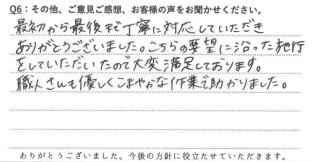 Q6：その他、ご意見ご感想、お客様の声をお聞かせください。
最初から最後まで丁寧に対応していただき
ありがとうございました。こちらの要望に沿った施行
をしていただいたので大変満足しております。
職人さんも優しくこまやかな作業で助かりました。
ありがとうございました。今後の方針に役立たせていただきます。